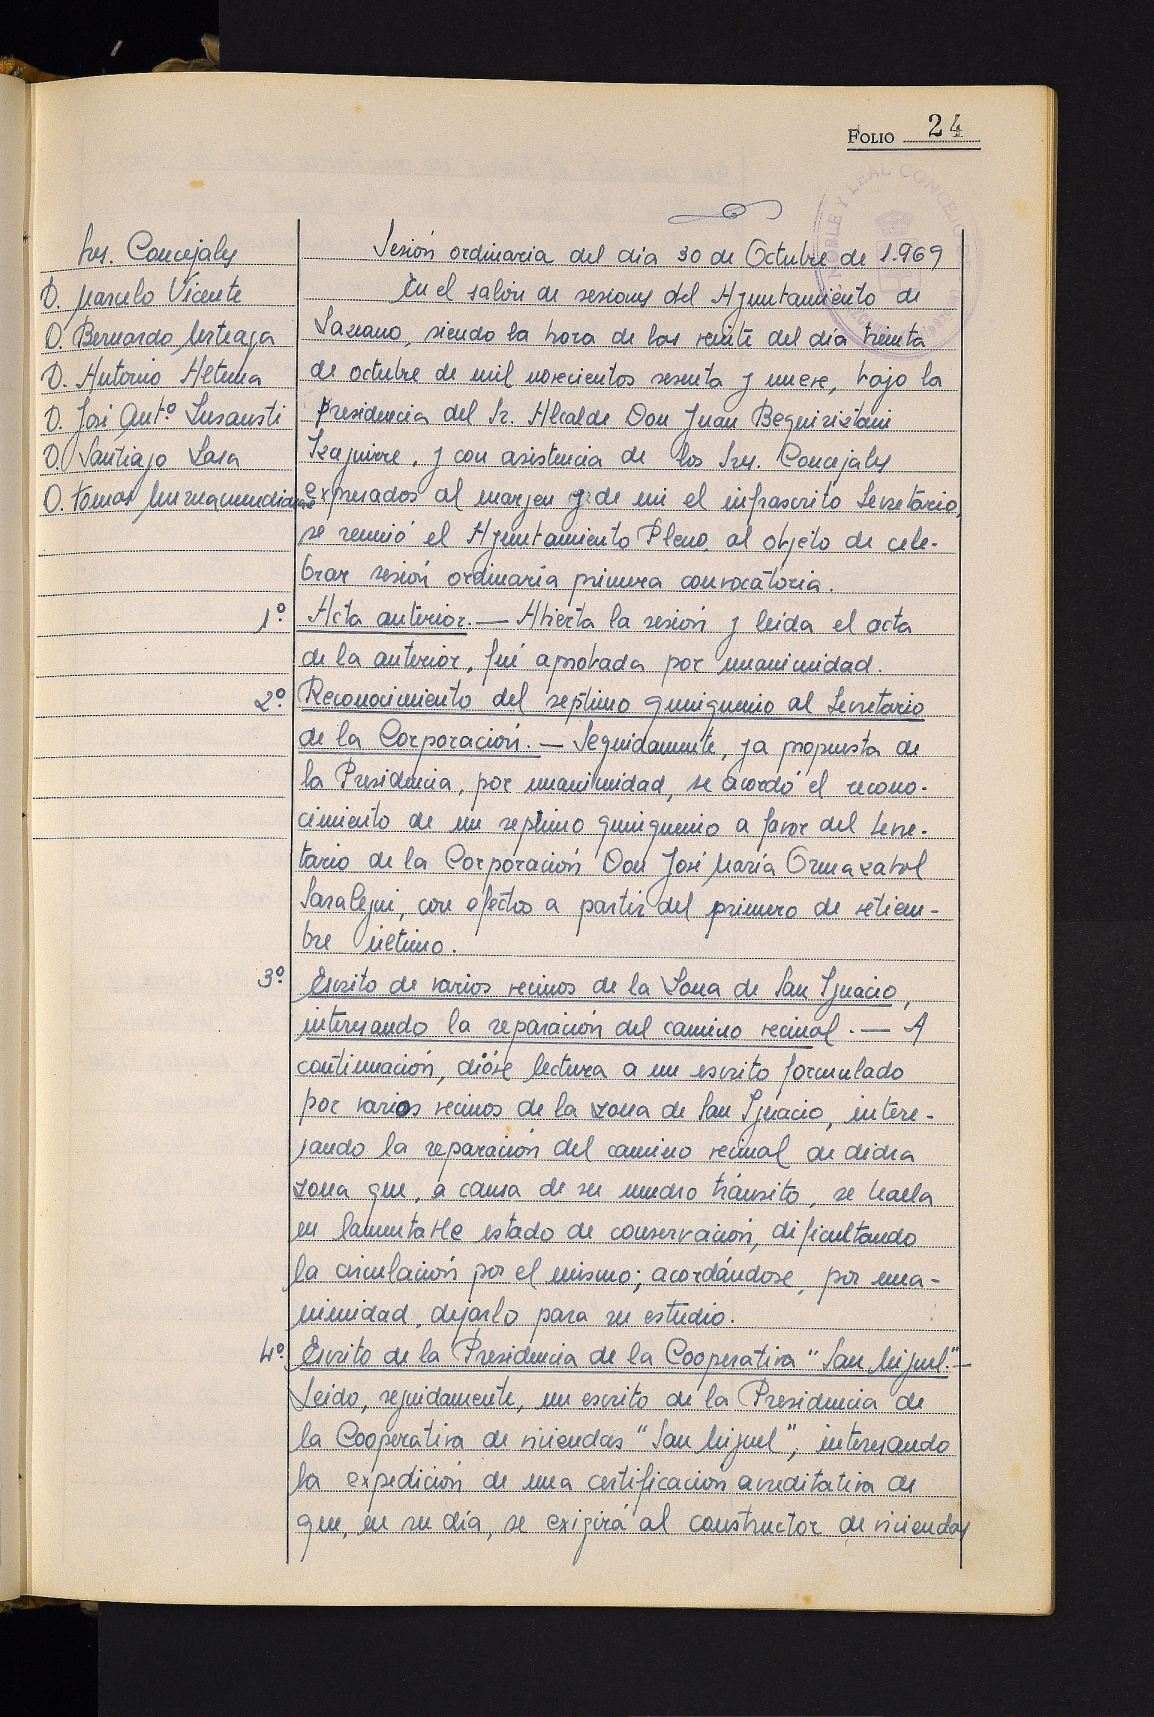 FOLIO 24
NOBLE Y LEAL CONCEJO
Sres. Concejales
D. Marcelo Vicente
D. Bernardo Urteaga
D. Antonio Altuna
D. José Antº Insausti
D. Santiago Lasa
D. Tomás
Sesión ordinaria del día 30 de Octubre de 1.969
En el salón de sesiones del Ayuntamiento de
Lazcano, siendo la hora de las veinte del día treinta
de octubre de mil novecientos sesenta y nueve, bajo la
presidencia del Sr. Alcalde Don Juan Beguiristain
Izaguirre, y con asistencia de los Sres. Concejales
expresados al margen y de mi el infrascrito Secretario,
se reunió el Ayuntamiento Pleno, al objeto de cele-
brar sesión ordinaria primera convocatoria.
1º Acta anterior. — Abierta la sesión y leida el acta
de la anterior, fué aprobada por unanimidad.
2º Reconocimiento del septimo quinquenio al Secretario
de la Corporación. — Seguidamente, y a propuesta de
la Presidencia, por unanimidad, se acordó el recono-
cimiento de un septimo quinquenio a favor del Secre-
tario de la Corporación Don José María Ormazabal
Saralegui, con efectos a partir del primero de setiem-
bre último.
3º Escrito de varios vecinos de la Zona de San Ignacio,
interesando la reparación del camino vecinal. — A
continuación, dióse lectura a un escrito formulado
por varios vecinos de la zona de San Ignacio, intere-
sando la reparación del camino vecinal de dicha
zona que, a causa de su mucho tránsito, se halla
en lamentable estado de conservación, dificultando
la circulación por el mismo; acordándose, por una-
nimidad, dejarlo para su estudio.
4º. Escrito de la Presidencia de la Cooperativa "San Miguel." —
Leido, seguidamente, un escrito de la Presidencia de
la Cooperativa de viviendas "San Miguel", interesando
la expedición de una certificación acreditativa de
que, en su día, se exigirá al constructor de viviendas